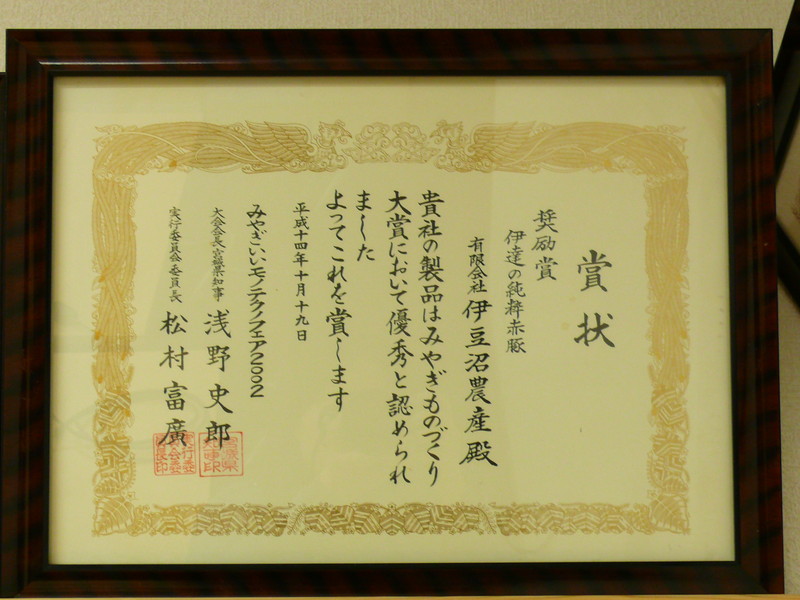 賞状
奨励賞
伊達の純粋赤豚
有限会社 伊豆沼農産 殿
貴社の製品はみやぎものづくり
大賞において優秀と認められ
ました
よってこれを賞します
平成十四年十月十九日
みやぎいいモノテクノフェア2002
大会会長 宮城県知事 浅野史郎
実行委員会委員長 松村富廣